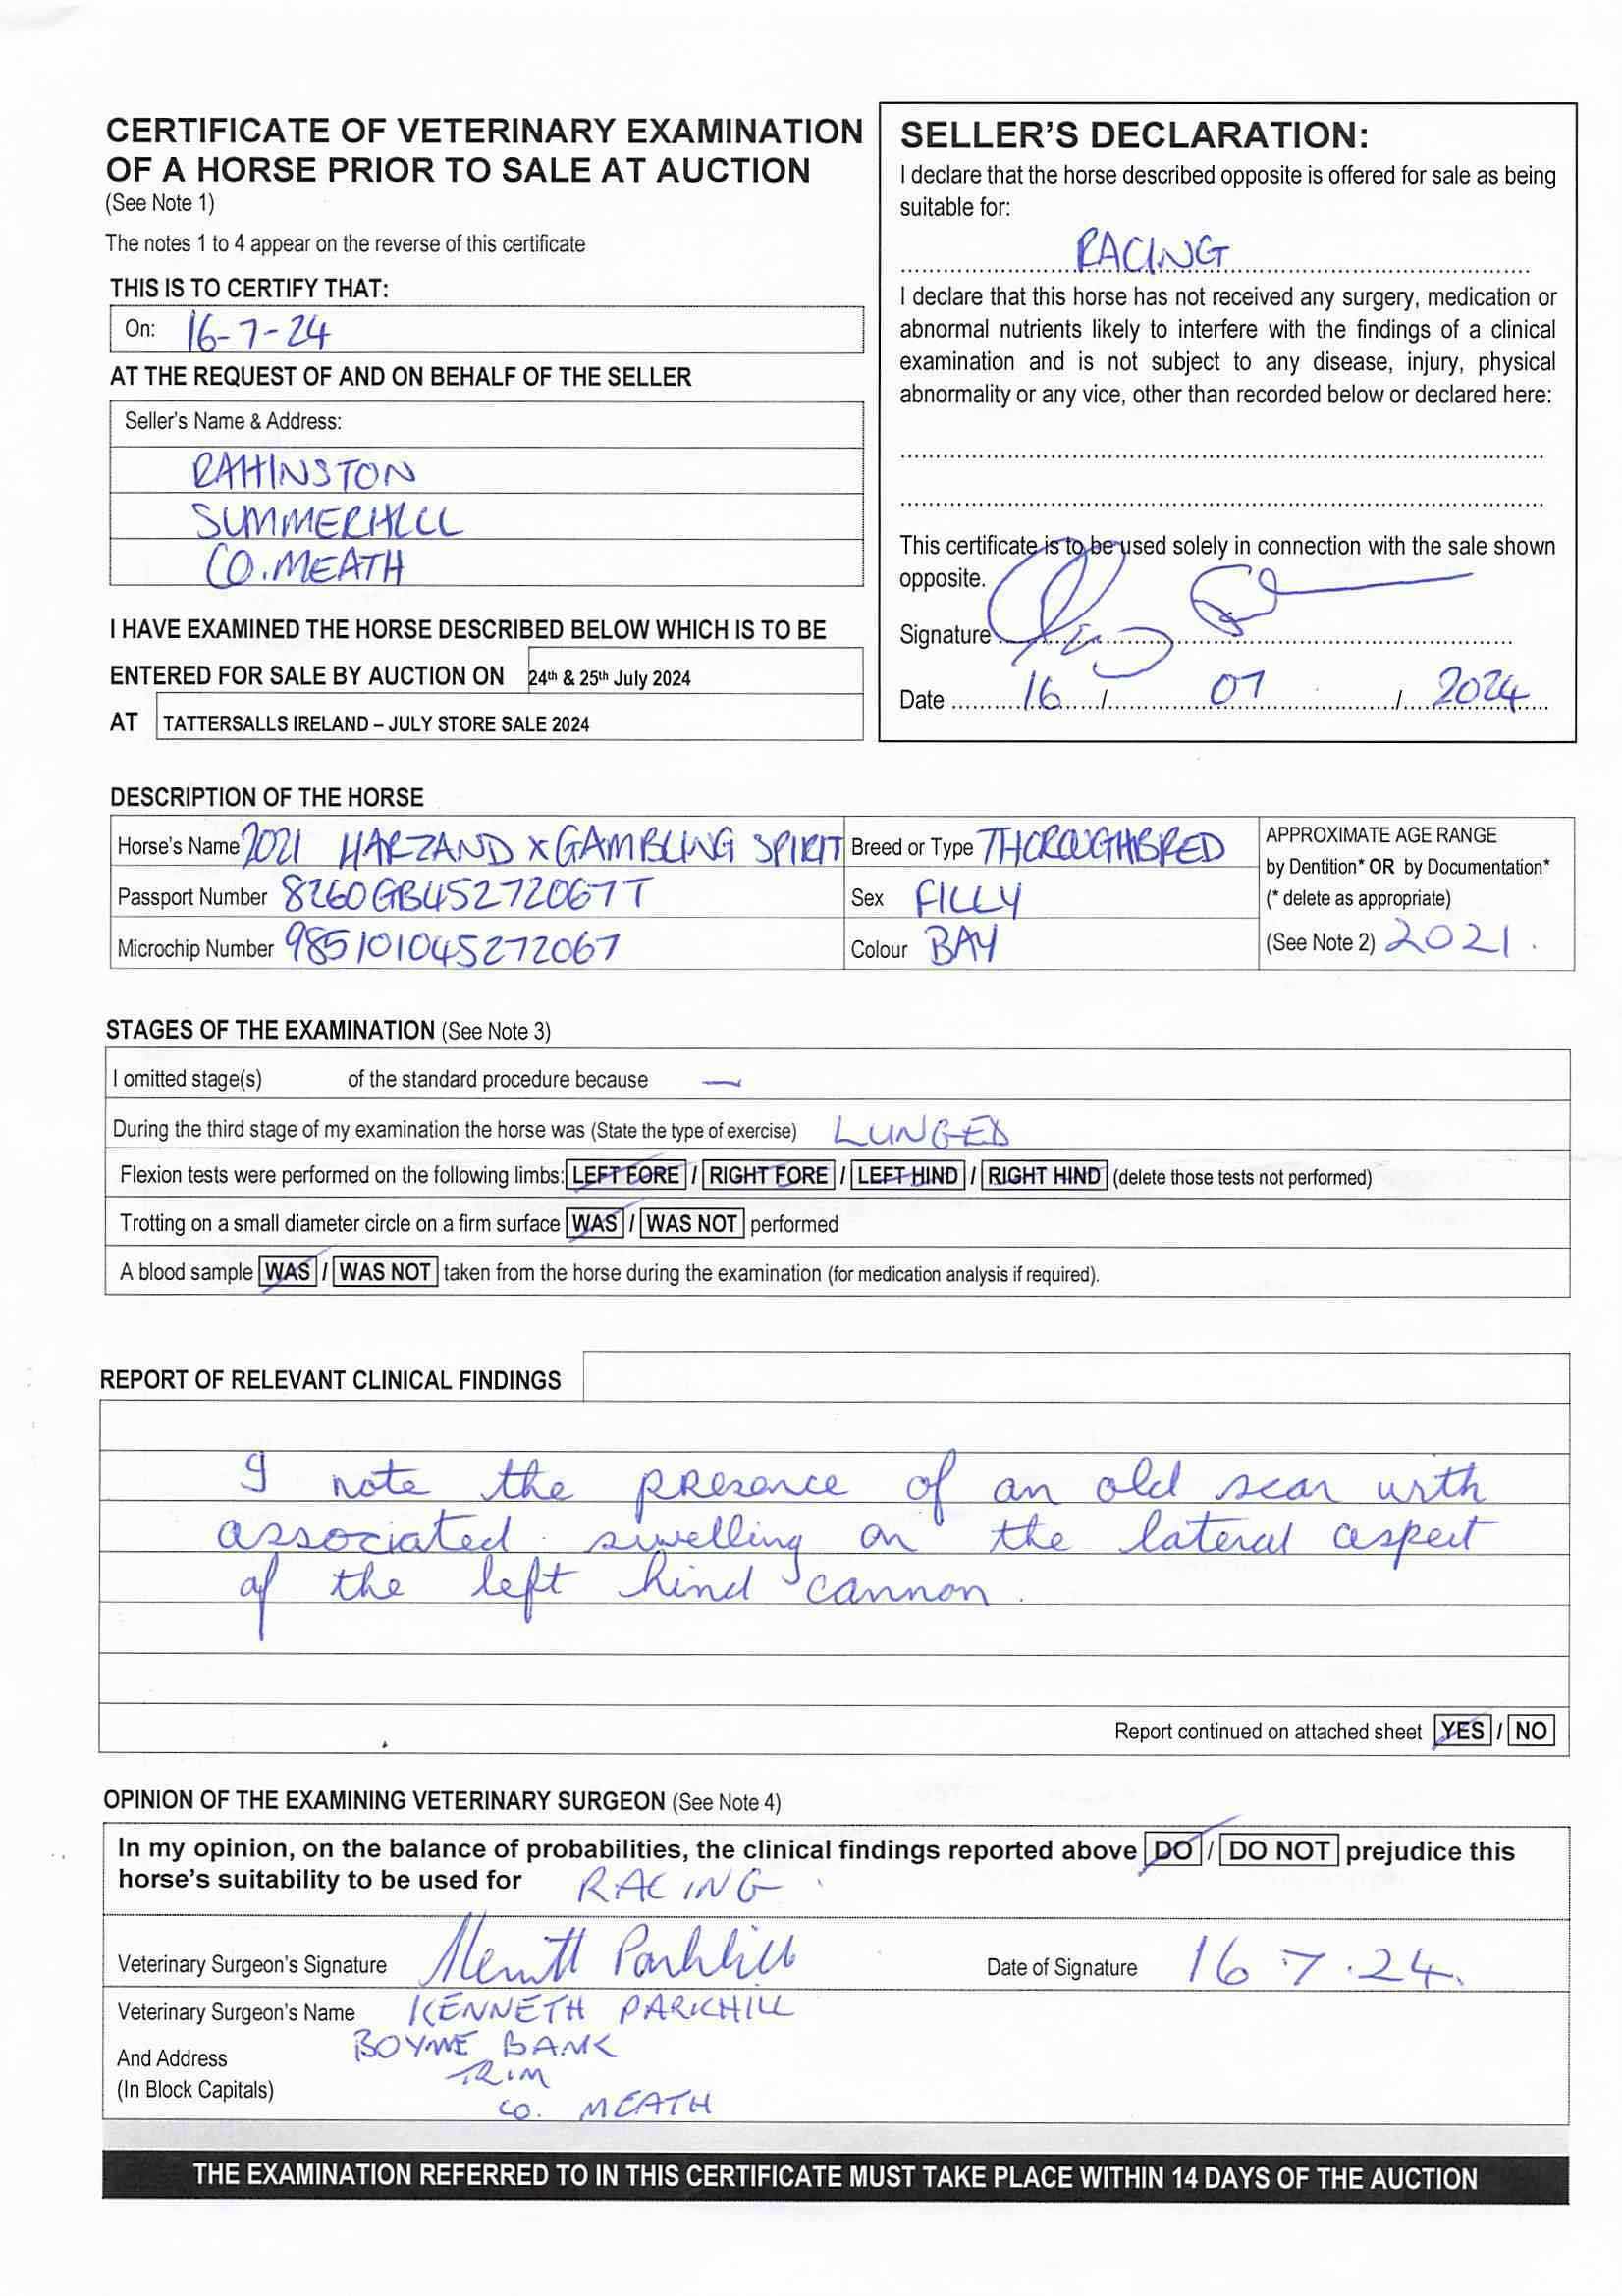 CERTIFICATE OF VETERINARY EXAMINATION
OF A HORSE PRIOR TO SALE AT AUCTION
(See Note 1)
The notes 1 to 4 appear on the reverse of this certificate
THIS IS TO CERTIFY THAT:
On: 16-7-24
AT THE REQUEST OF AND ON BEHALF OF THE SELLER
Seller's Name & Address:
RAHINSTON
SUMMERHILL
CO. MEATH
I HAVE EXAMINED THE HORSE DESCRIBED BELOW WHICH IS TO BE
ENTERED FOR SALE BY AUCTION ON 24th & 25th July 2024
AT TATTERSALLS IRELAND – JULY STORE SALE 2024
SELLER'S DECLARATION:
I declare that the horse described opposite is offered for sale as being
suitable for:
RACING
I declare that this horse has not received any surgery, medication or
abnormal nutrients likely to interfere with the findings of a clinical
examination and is not subject to any disease, injury, physical
abnormality or any vice, other than recorded below or declared here:
This certificate is to be used solely in connection with the sale shown
opposite.
Signature
Date 16 / 07 / 2024
DESCRIPTION OF THE HORSE
Horse's Name 2021 HARZAND x GAMBLING SPIRIT
Breed or Type THOROUGHBRED
Passport Number 8260GB45272067T
Sex FILLY
Microchip Number 985101045272067
Colour BAY
APPROXIMATE AGE RANGE
by Dentition* OR by Documentation*
(* delete as appropriate)
(See Note 2) 2021.
STAGES OF THE EXAMINATION (See Note 3)
I omitted stage(s) of the standard procedure because —
During the third stage of my examination the horse was (State the type of exercise) LUNGED
Flexion tests were performed on the following limbs: LEFT FORE / RIGHT FORE / LEFT HIND / RIGHT HIND (delete those tests not performed)
Trotting on a small diameter circle on a firm surface WAS / WAS NOT performed
A blood sample WAS / WAS NOT taken from the horse during the examination (for medication analysis if required).
REPORT OF RELEVANT CLINICAL FINDINGS
I note the presence of an old scar with
associated swelling on the lateral aspect
of the left hind cannon.
Report continued on attached sheet YES / NO
OPINION OF THE EXAMINING VETERINARY SURGEON (See Note 4)
In my opinion, on the balance of probabilities, the clinical findings reported above DO / DO NOT prejudice this
horse's suitability to be used for RACING.
Veterinary Surgeon's Signature Kenneth Parkhill
Date of Signature 16.7.24.
Veterinary Surgeon's Name KENNETH PARKHILL
And Address BOYNE BANK
(In Block Capitals) TRIM
CO. MEATH
THE EXAMINATION REFERRED TO IN THIS CERTIFICATE MUST TAKE PLACE WITHIN 14 DAYS OF THE AUCTION